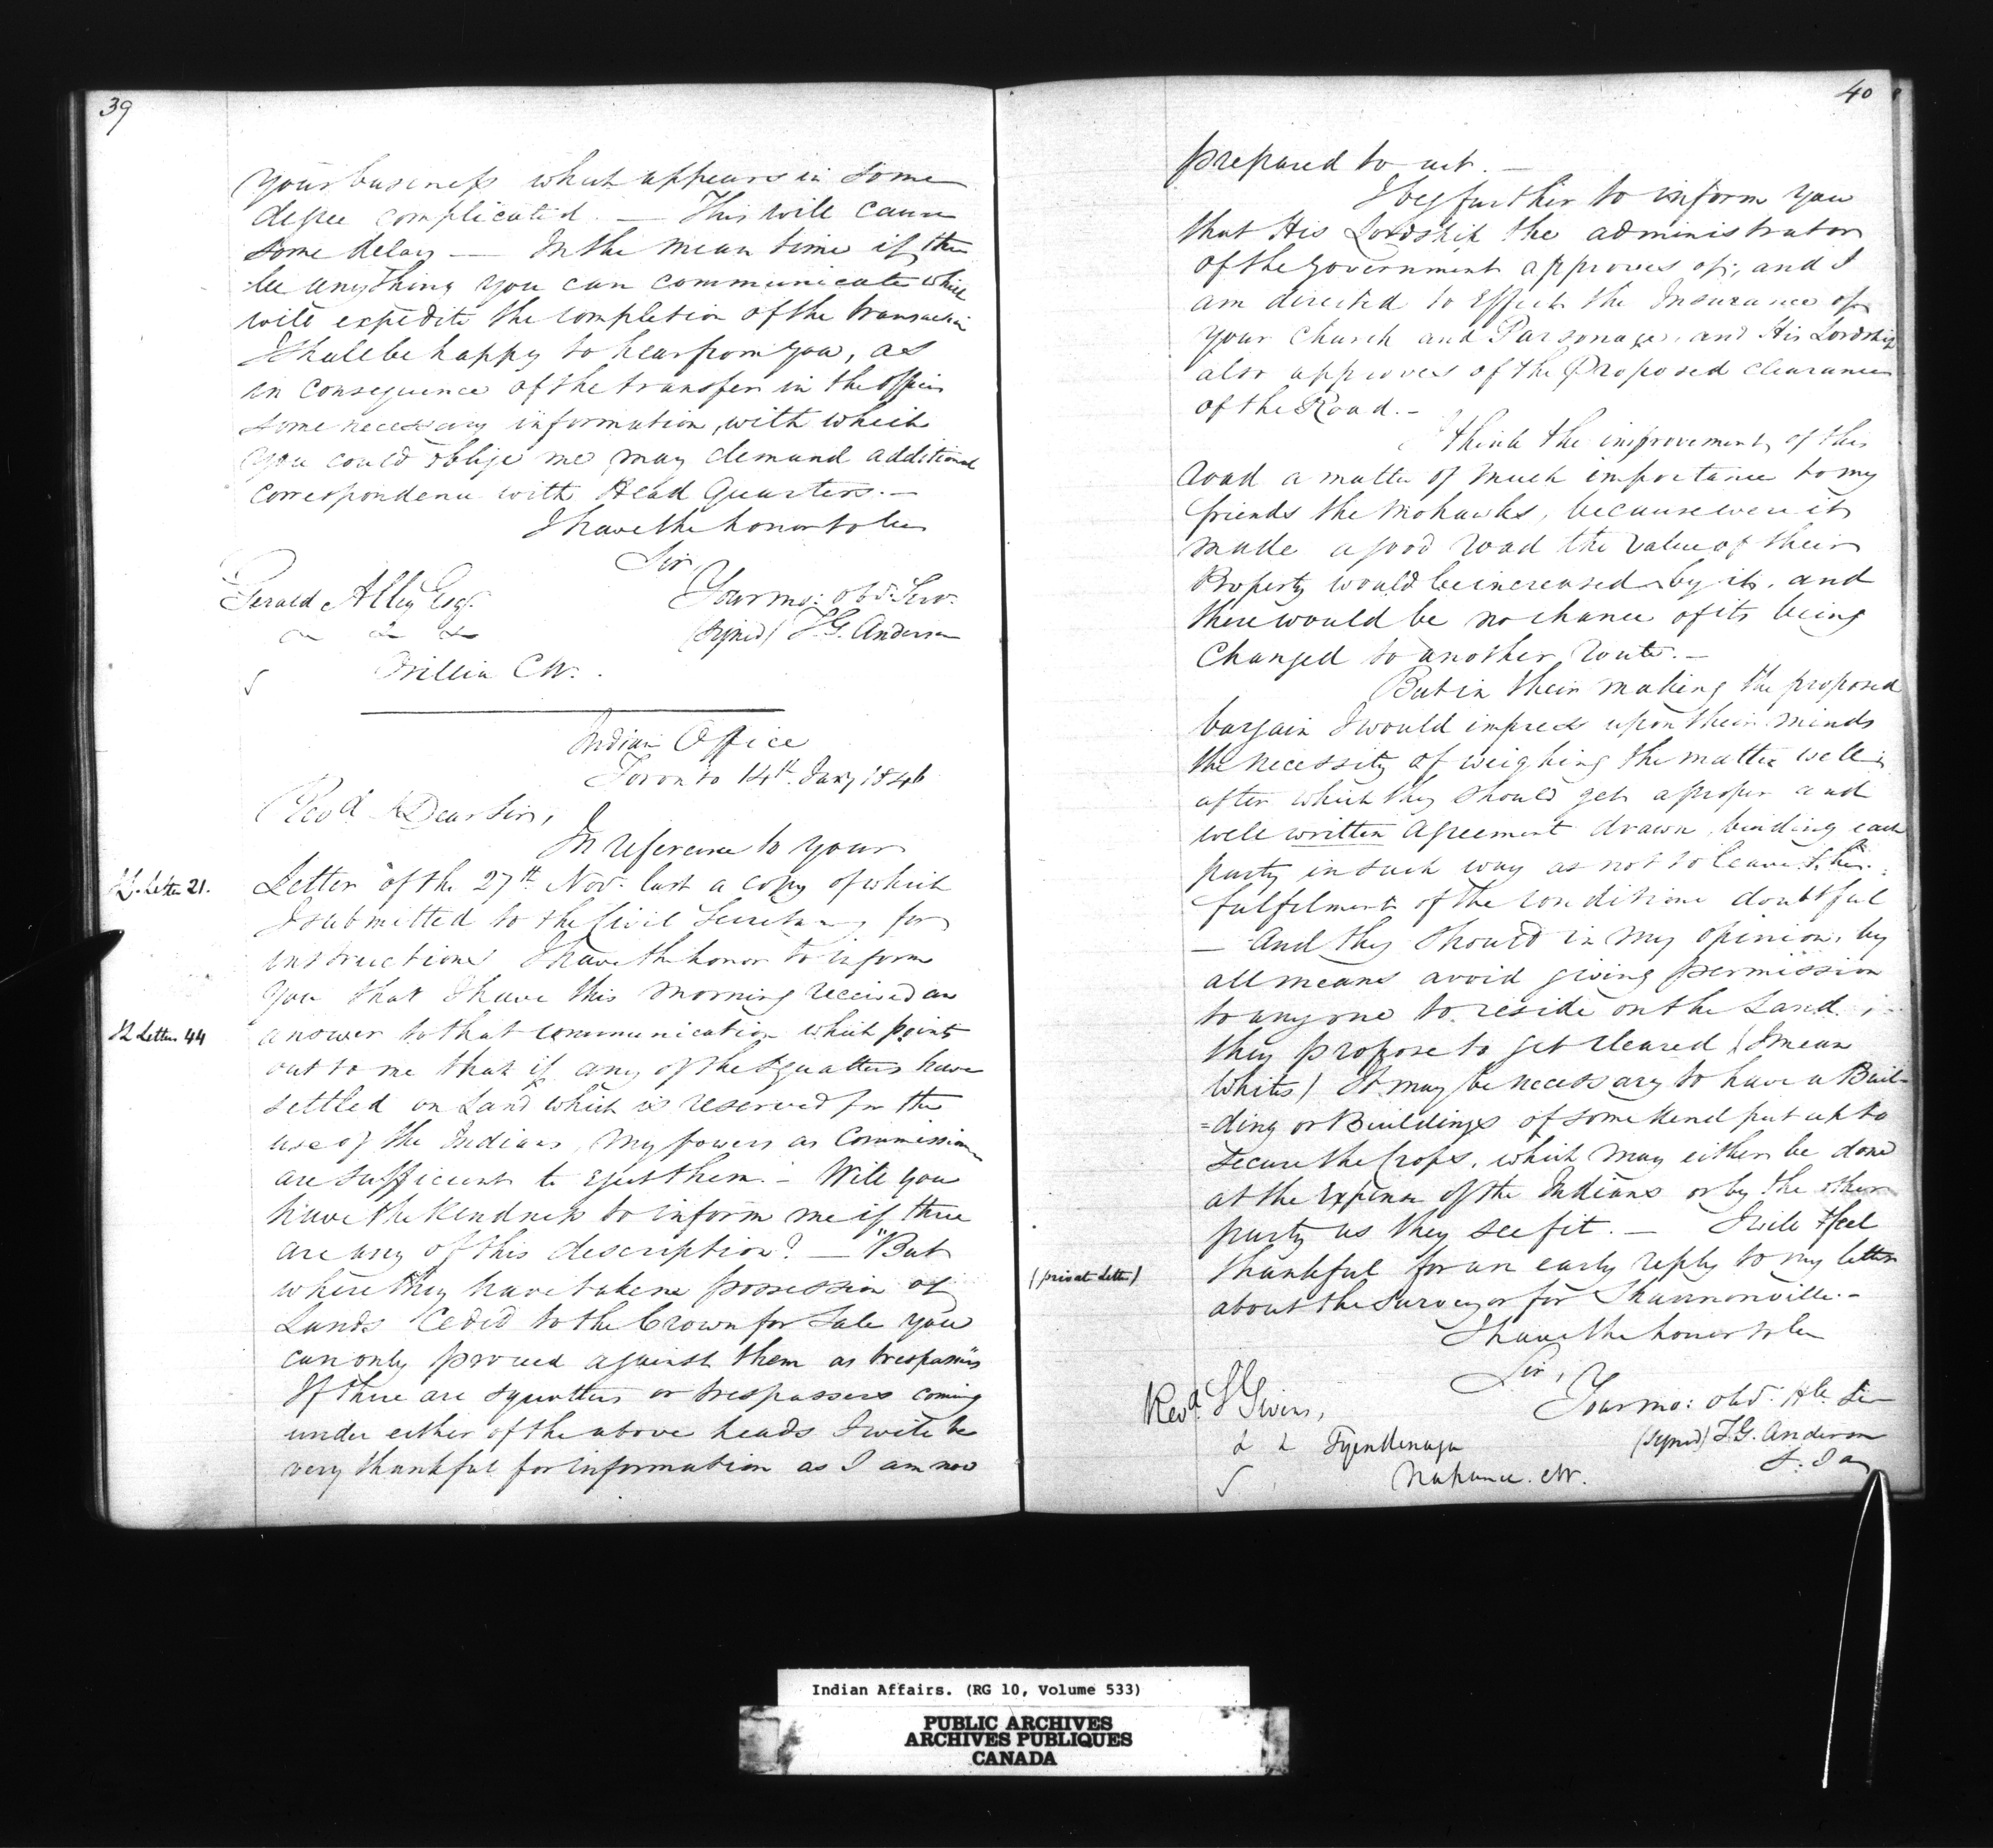 39
your business which appears in some
degree complicated. — This will cause
some delay — In the mean time if there
be anything you can communicate which
will expedite the completion of the transaction
I shall be happy to hear from you, as
in consequence of the transfer in the offices
some necessary information, with which
you could oblige me may demand additional
correspondence with Head Quarters. —
I have the honor to be
Sir
Your mo: obt. Serv.
Gerald Alley Esqr.
(signed) T.G. Anderson
Orillia C.W.
Indian Office
Toronto 14th. Jany 1846
Revd. & Dear Sir,
In reference to your
Letter 21.
Letter of the 27th. Nov. last a copy of which
I submitted to the Civil Secretary for
instructions I have the honor to inform
you that I have this morning received an
Letter 44
answer to that communication which points
out to me that if any of the Squatters have
settled on Land which is reserved for the
use of the Indians, my powers as Commissioner
are sufficient to eject them. — Will you
have the kindness to inform me if there
are any of this description? — "But
where they have taken possession of
Lands Ceded to the Crown for Sale you
can only proceed against them as trespassers"
If there are squatters or trespassers coming
under either of the above heads I will be
very thankful for information as I am now
40
prepared to act. —
I beg further to inform you
that His Lordship the administrator
of the Government approves of, and I
am directed to Effect the Insurance of
your Church and Parsonage, and His Lordship
also approves of the Proposed clearance
of the Road. —
I think the improvement of this
road a matter of much importance to my
friends the Mohawks, because were it
made a good road the value of their
Property would be increased by it, and
there would be no chance of its being
Changed to another route. —
But in their making the proposed
bargain I would impress upon their minds
the necessity of weighing the matter well;
after which they should get a proper and
well written agreement drawn, binding each
party in such way as not to leave the
fulfilment of the conditions doubtful
— And they should in my opinion, by
all means avoid giving permission
to any one to reside on the Land
they propose to get cleared (I mean
whites) It may be necessary to have a Buil-
=ding or Buildings of some kind put up to
secure the Crops, which may either be done
at the Expense of the Indians or by the other
party as they see fit. — I will feel
(private Letter)
thankful for an early reply to my letter
about the surveyor for Shannonville. —
I have the honor to be
Sir,
Your mo: obt. Hle. Ser
Revd. S Givins,
(signed) T.G. Anderson
& & Tyendenaga
Napanee. CW.
Indian Affairs. (RG 10, Volume 533)
PUBLIC ARCHIVES
ARCHIVES PUBLIQUES
CANADA